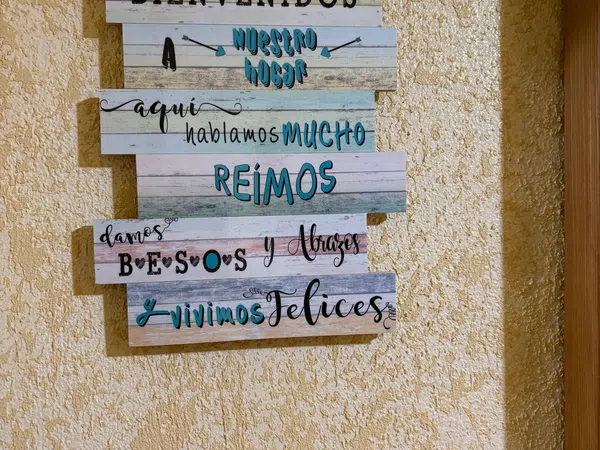 BIENVENIDOS
A NUESTRO
HOGAR
aquí
hablamos MUCHO
REÍMOS
damos
B♥E♥S♥O♥S y Abrazos
y vivimos Felices